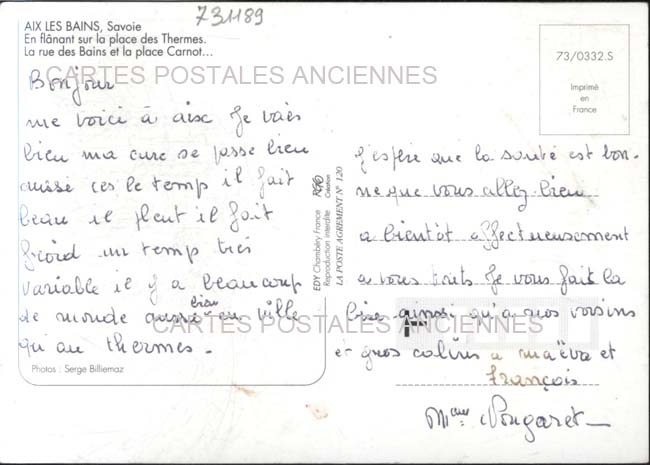 731189
AIX LES BAINS, Savoie
En flânant sur la place des Thermes.
La rue des Bains et la place Carnot...
CARTES POSTALES ANCIENNES
Bonjour
me voici à aix Je vais
bien ma cure se passe bien
aussi ces le temp il fait
beau il pleut il fait
froid un temp très
variable il y a beaucoup
de monde aussi bien en ville
qu'au thermes.
Photos : Serge Billiemaz
EDY Chambéry France
Reproduction interdite
Création
LA POSTE AGREMENT N° 120
73/0332.S
Imprimé
en
France
j'espère que la santé est bon-
ne que vous allez bien
a bientôt affectueusement
a vous touts Je vous fait la
bise ainsi qu'a nos voisins
CARTES POSTALES ANCIENNES
et gros calins a maëva et
François